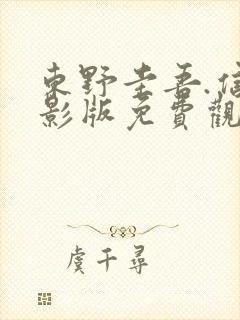 東野圭吾.信
影版免費觀
虞千尋